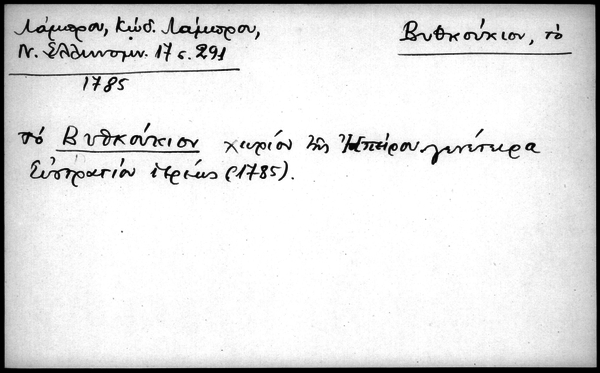 Λάμπρου, Κώδ. Λάμπρου,
Ν. Ἑλληνομν. 17 σ. 291
1785
Βυθκούκιον, τὸ
τὸ Βυθκούκιον χωρίον τῆς Ἠπείρου γενέτειρα
Εὐστρατίου ἱερέως (1785).